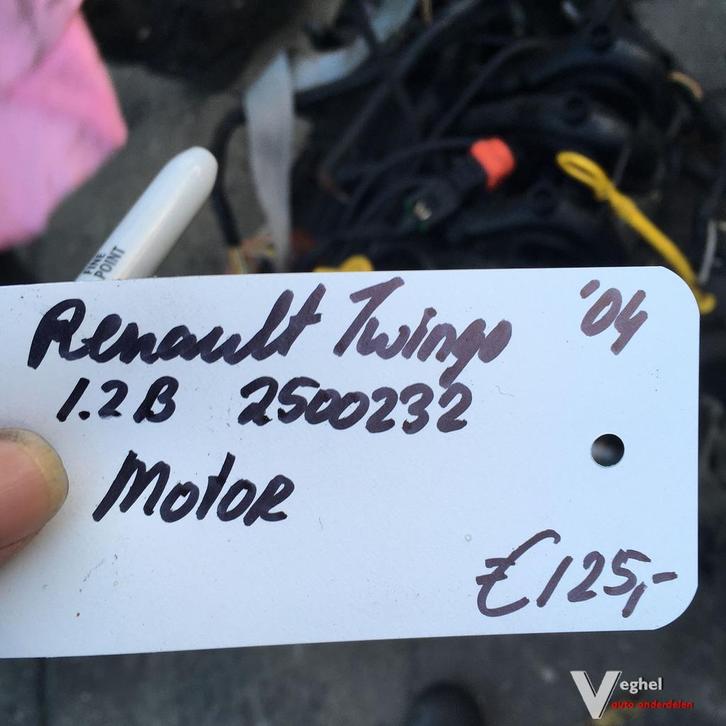 FINE
POINT
Renault Twingo '04
1.2B 2500232
Motor
€125,-
Veghel
auto onderdelen